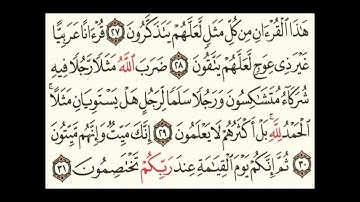 هَٰذَا ٱلۡقُرۡءَانِ مِن كُلِّ مَثَلٖ لَّعَلَّهُمۡ يَتَذَكَّرُونَ ٢٧ قُرۡءَانًا عَرَبِيًّا
غَيۡرَ ذِي عِوَجٖ لَّعَلَّهُمۡ يَتَّقُونَ ٢٨ ضَرَبَ ٱللَّهُ مَثَلٗا رَّجُلٗا فِيهِ
شُرَكَآءُ مُتَشَٰكِسُونَ وَرَجُلٗا سَلَمٗا لِّرَجُلٍ هَلۡ يَسۡتَوِيَانِ مَثَلًاۚ
ٱلۡحَمۡدُ لِلَّهِۚ بَلۡ أَكۡثَرُهُمۡ لَا يَعۡلَمُونَ ٢٩ إِنَّكَ مَيِّتٞ وَإِنَّهُم مَّيِّتُونَ
٣٠ ثُمَّ إِنَّكُمۡ يَوۡمَ ٱلۡقِيَٰمَةِ عِندَ رَبِّكُمۡ تَخۡتَصِمُونَ ٣١